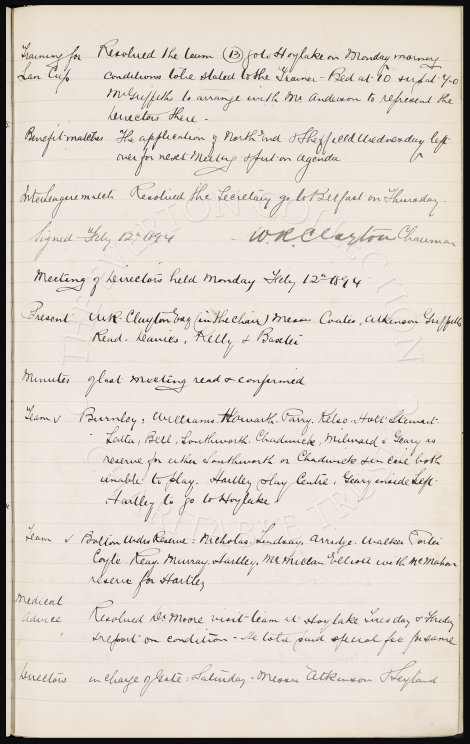 Training for Resolved the team (13) go to Hoylake on Monday morning
Lan Cup conditions to be stated to the Trainer - Bed at 10 sup at 7-0
Mr Griffiths to arrange with Mr Anderson to represent the
Directors there -
Benefit matches The application of North End & Sheffield Wednesday left
over for next Meeting & put on agenda
Interleague match Resolved the Secretary go to Belfast on Thursday.
Signed Feby 12th 1894 W.R. Clayton Chairman
Meeting of Directors held Monday Feby 12th 1894
Present W.R. Clayton Esq (in the chair) Messrs Coates, Atkinson Griffiths
Read. Davies, Kelly & Baxter
Minutes of last meeting read & confirmed
Team v Burnley, Williams, Howarth, Parry, Kelso, Holt Stewart
Latta, Bell, Southworth, Chadwick, Milward & Geary as
reserve for either Southworth or Chadwick & in case both
unable to play. Hartley play Centre. Geary inside left
Hartley to go to Hoylake
Team v Bolton Wdrs Reserve: Nicholas, Lindsay. Arridge. Walker
Coyle Reay. Murray. Hartley. McMillan Elliott with McMahon
reserve for Hartley
Medical
advice Resolved Dr Moore visit team at Hoylake Tuesday &
& report on condition - He to be paid special fee for same
Directors in charge of Gate: Saturday - Messrs Atkinson & Leyland
THE EVERTON COLLECTION
CHARITABLE TRUST